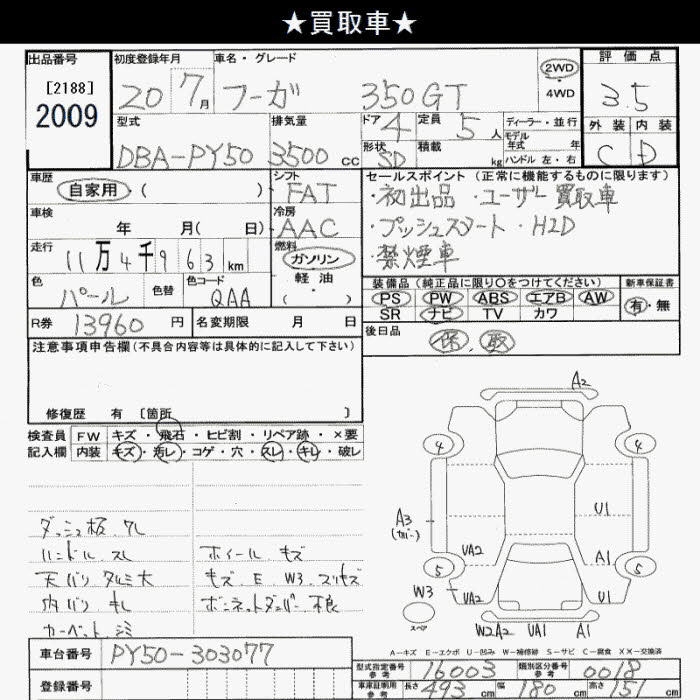 ★買取車★
出品番号 初度登録年月 車名・グレード 2WD 評価点
[2188] 20 7月 フーガ 350GT ・4WD 3.5
2009
型式 排気量 ドア 4 定員 5人 ディーラー・並行 外装 内装
モデル年式 年
DBA-PY50 3500cc 形状 SD 積載 kg ハンドル 左・右 C D
車歴 シフト セールスポイント (正常に機能するものに限ります)
自家用 ( ) FAT ・初出品 ・ユーザー買取車
車検 冷房 ・プッシュスタート ・HDD
年 月( 日) AAC ・禁煙車
走行 燃料
11万4千963km ガソリン
色 色替 色コード 軽油 装備品 (純正品に限り○をつけてください) 新車保証書
パール QAA ( ・ ) PS PW ABS エアB AW 有・無
SR ナビ TV カワ
R券 13960円 名変期限 月 日 後日品
保、取
注意事項申告欄(不具合内容等は具体的に記入して下さい)
修復歴 有 〔箇所 〕
検査員 FW キズ・飛石・ヒビ割・リペア跡・×要
記入欄 内装 キズ・汚レ・コゲ・穴・スレ・キレ・破レ
ダッシュ板、ワレ
ハンドル スレ ホイール キズ
天バリ タルミ大 キズ E W3 スリキズ
内バリ キレ ボンネットダンパー 不良
カーペット、シミ
A2
4 4
A3 U1
VA2 A1
5 5
W3 VA2 U1
スペア
W2A2 UA1 A1
A-キズ E-エクボ U-凹み W-補修跡 S-サビ C-腐食 XX-交換済
車台番号 PY50-303077
型式指定番号 参考 16003 類別区分番号 参考 0018
登録番号
車庫証明用 参考 長さ 493cm 幅 180cm 高さ 151cm